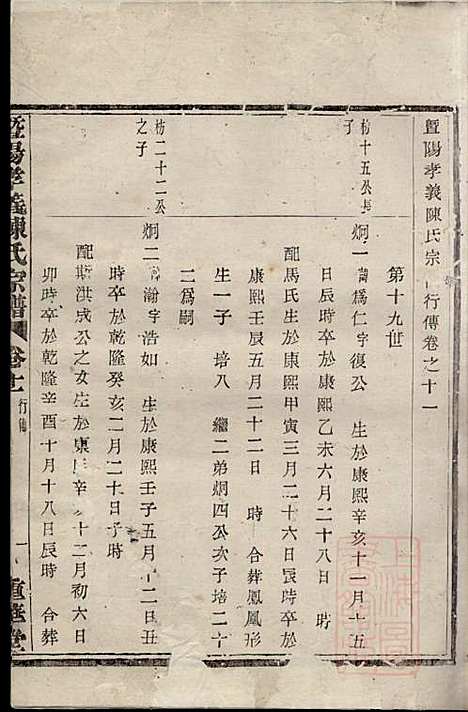 暨陽孝義陳氏宗 行傳卷之十一
第十九世
枋十五公長
子
炯一 諱為仁字復公 生於康熙辛亥十一月十五
日辰時卒於康熙乙未六月二十八日 時
配馬氏生於康熙甲寅三月二十六日辰時卒於
康熙壬辰五月二十二日 時 合葬鳳凰形
生一子 培八 繼二弟炯四公次子培二十
二為嗣
枋二十二公
之子
炯二 瀚字浩如 生於康熙壬子五月十二日丑
時卒於乾隆癸亥二月二十日子時
配斯洪成公之女生於康 辛 十二月初六日
卯時卒於乾隆辛酉十月十八日辰時 合葬
暨陽孝義陳氏宗譜 卷十一 行傳 一 重華堂